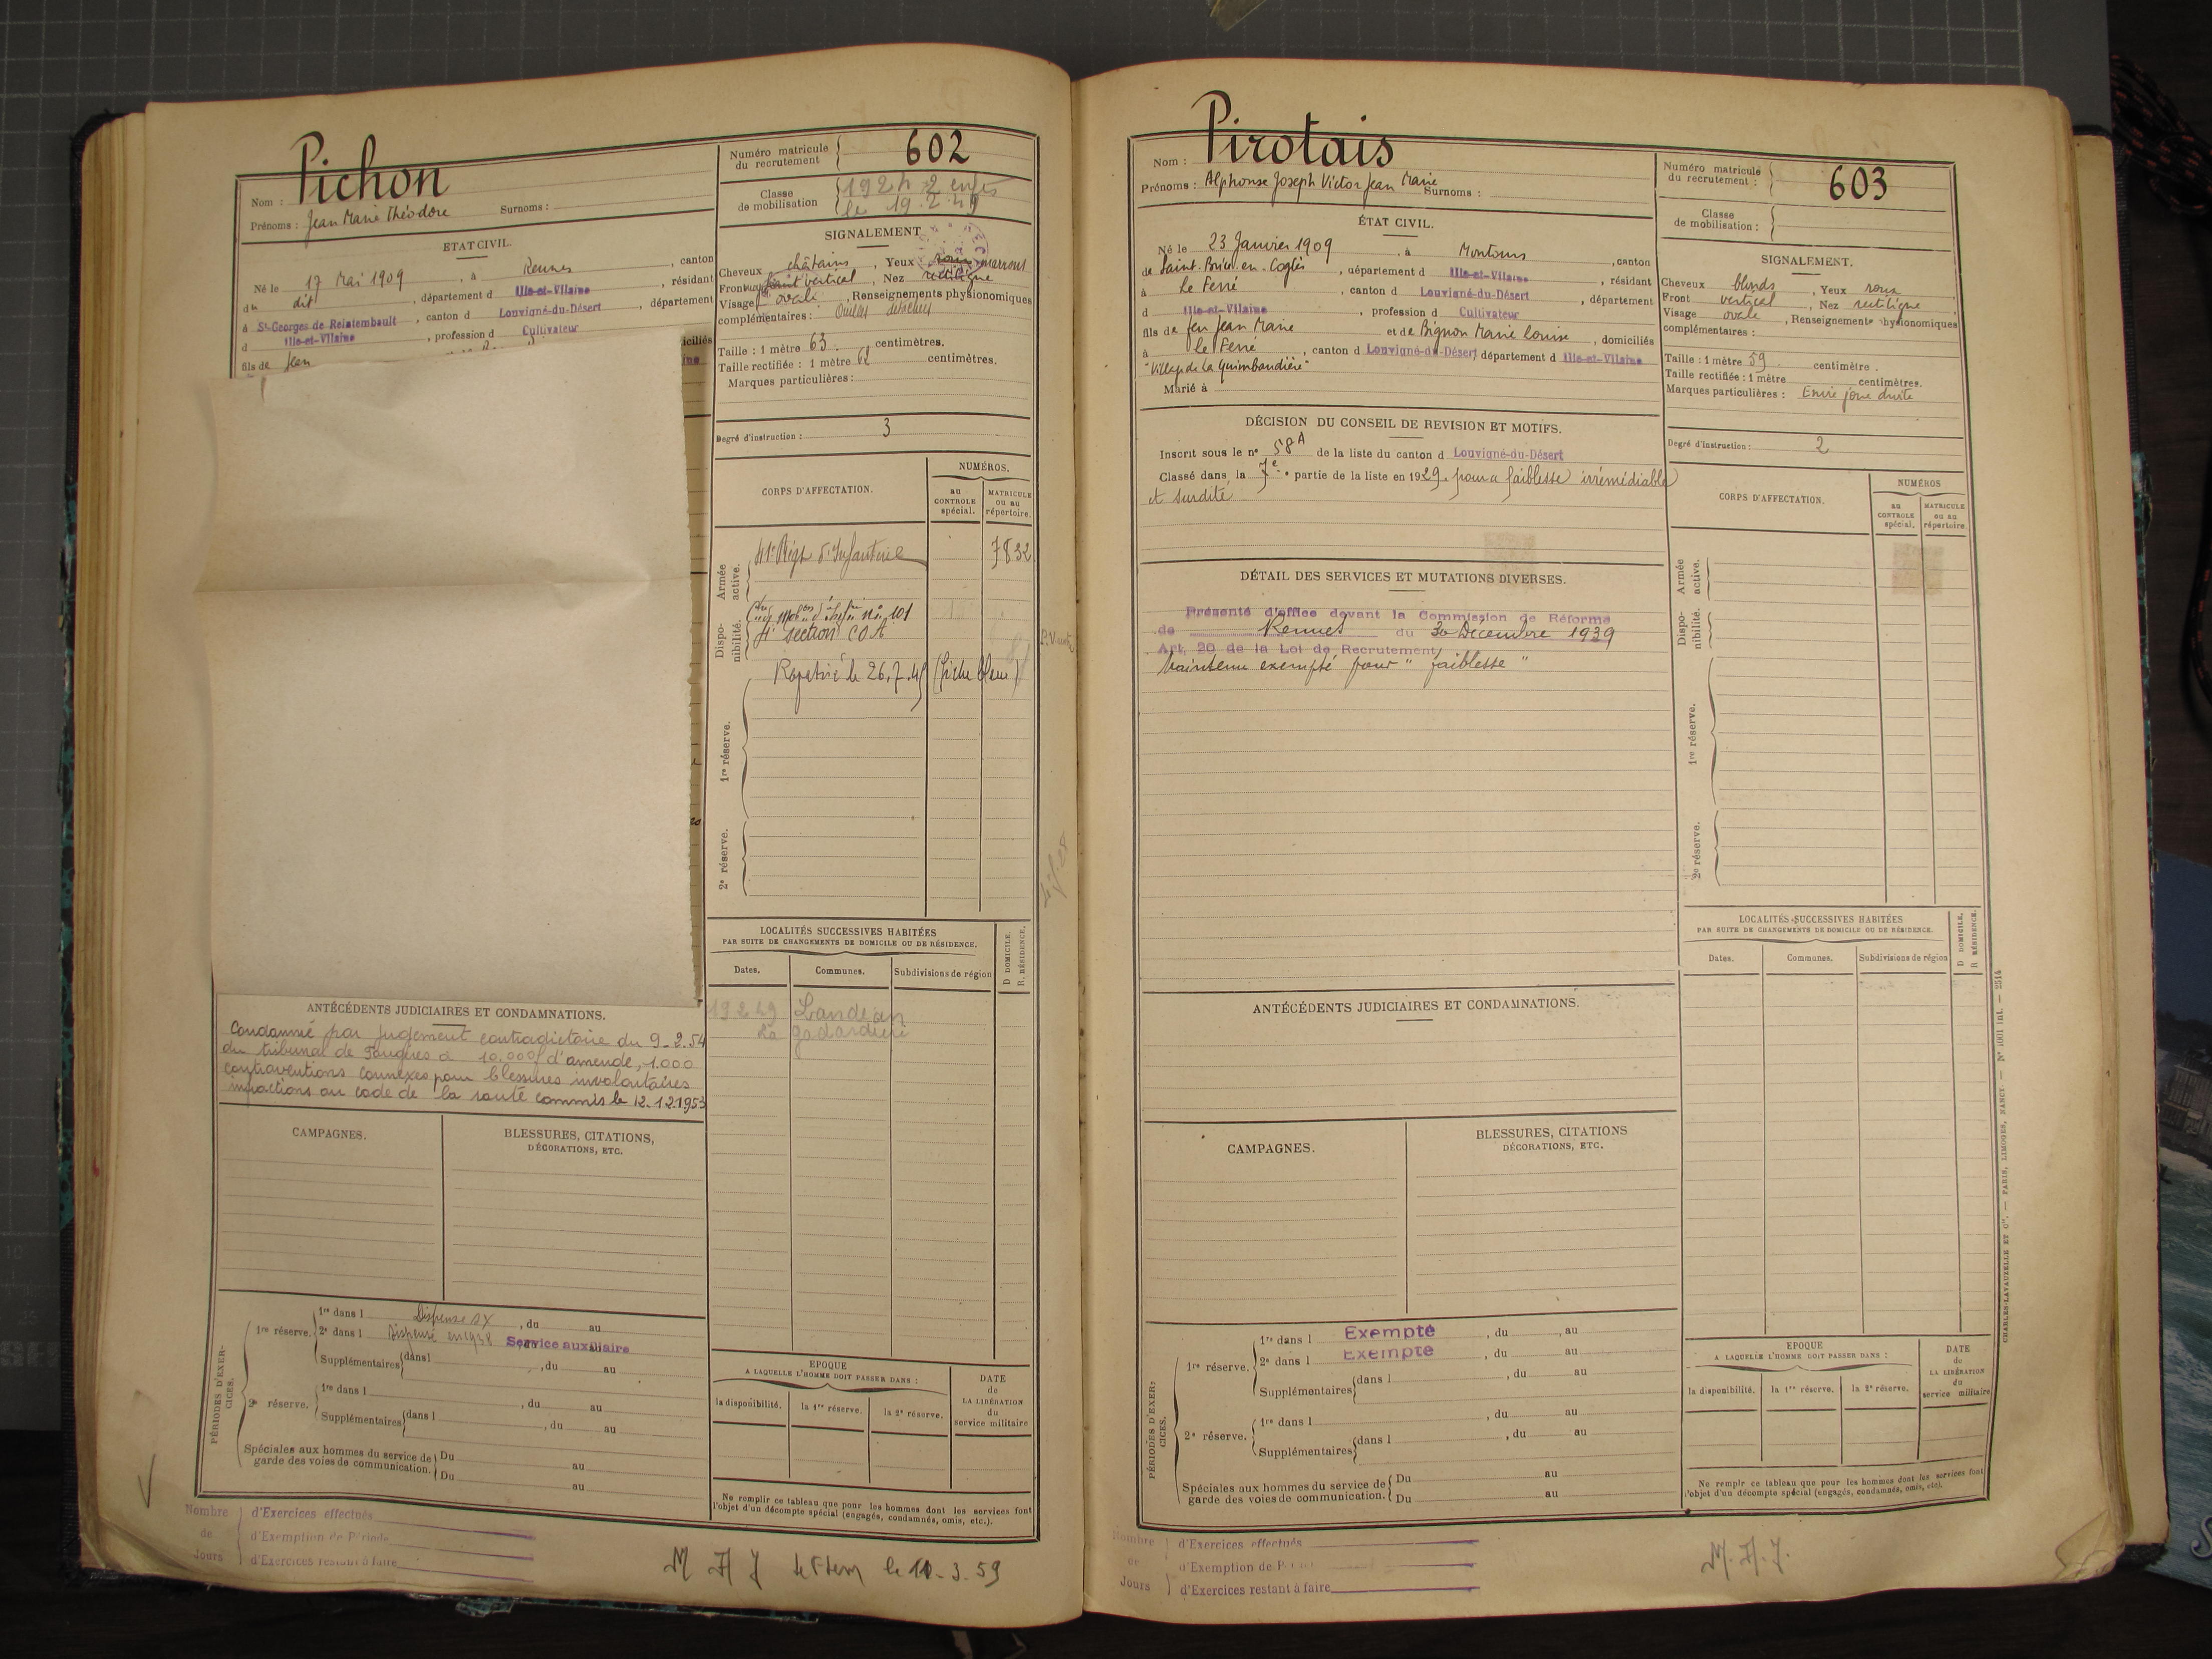 Nom : Pichon
Prénoms : Jean Marie Théodore Surnoms :
Numéro matricule
du recrutement
602
Classe
de mobilisation
1924 2 enfts
le 19.2.49
ETAT CIVIL.
Né le 17 Mai 1909, à Rennes, canton
du dit, département d Ille-et-Vilaine, résidant
à St-Georges de Reintembault, canton d Louvigné-du-Désert, département
d Ille-et-Vilaine, profession d Cultivateur
fils de Jean
iciliés
ine
SIGNALEMENT
Cheveux châtains, Yeux marrons
Front vertical, Nez rectiligne
Visage ovale, Renseignements physionomiques
complémentaires : Oreilles détachées
Taille : 1 mètre 63 centimètres.
Taille rectifiée : 1 mètre centimètres.
Marques particulières :
Degré d'instruction : 3
CORPS D'AFFECTATION.
NUMÉROS.
au
CONTROLE
spécial.
MATRICULE
ou au
répertoire.
Armée
active.
41e Régt d'Infanterie 7832
Dispo-
nibilité.
n° 101
4e section COA
Rapatrié le 26.7.45 (fiche bleue)
1re réserve.
2e réserve.
LOCALITÉS SUCCESSIVES HABITÉES
PAR SUITE DE CHANGEMENTS DE DOMICILE OU DE RÉSIDENCE.
D DOMICILE.
R. RÉSIDENCE.
Dates.
Communes.
Subdivisions de région
19 2 49 Landéan
La gadardière
ANTÉCÉDENTS JUDICIAIRES ET CONDAMNATIONS.
Condamné par jugement contradictoire du 9-2.54
du tribunal de Fougères à 10.000f d'amende, 1.000
contraventions connexes pour blessures involontaires
infractions au code de la route commis le 12.12.1953
CAMPAGNES.
BLESSURES, CITATIONS,
DÉCORATIONS, ETC.
PÉRIODES D'EXER-
CICES.
1re réserve.
1re dans l Dispensé, du au
2e dans l Dispensé en 1938 Service auxiliaire
Supplémentaires dans l, du au
2e réserve.
1re dans l, du au
Supplémentaires dans l, du au
Spéciales aux hommes du service de
garde des voies de communication.
Du au
Du au
EPOQUE
A LAQUELLE L'HOMME DOIT PASSER DANS :
la disponibilité.
la 1re réserve.
la 2e réserve.
DATE
de
LA LIBÉRATION
du
service militaire
Ne remplir ce tableau que pour les hommes dont les services font
l'objet d'un décompte spécial (engagés, condamnés, omis, etc.).
Nombre
de
Jours
d'Exercices effectués
d'Exemption de Période
d'Exercices restant à faire
M A J le 10-3-59
Nom : Pirotais
Prénoms : Alphonse Joseph Victor Jean Marie Surnoms :
Numéro matricule
du recrutement :
603
Classe
de mobilisation :
ÉTAT CIVIL.
Né le 23 Janvier 1909, à Montours, canton
de Saint-Brice-en-Coglès, département d Ille-et-Vilaine, résidant
à Le Ferré, canton d Louvigné-du-Désert, département
d Ille-et-Vilaine, profession d Cultivateur
fils de feu Jean Marie et de Pignon Marie Louise, domiciliés
à Le Ferré, canton d Louvigné-du-Désert département d Ille-et-Vilaine
"Village de la Guimbaudière"
Marié à
SIGNALEMENT.
Cheveux blonds, Yeux roux
Front vertical, Nez rectiligne
Visage ovale, Renseignements physionomiques
complémentaires :
Taille : 1 mètre 59 centimètre.
Taille rectifiée : 1 mètre centimètres.
Marques particulières : Envie joue droite
Degré d'instruction : 2
DÉCISION DU CONSEIL DE REVISION ET MOTIFS.
Inscrit sous le n° 58A de la liste du canton d Louvigné-du-Désert
Classé dans la 7e partie de la liste en 1929. pour faiblesse irrémédiable
et surdité
DÉTAIL DES SERVICES ET MUTATIONS DIVERSES.
Présenté d'office devant la Commission de Réforme
de Rennes du 30 Décembre 1939
Art. 20 de la Loi de Recrutement
Maintenu exempté pour "faiblesse"
CORPS D'AFFECTATION.
NUMÉROS
au
CONTROLE
spécial.
MATRICULE
ou au
répertoire.
Armée
active.
Dispo-
nibilité.
1re réserve.
2e réserve.
LOCALITÉS SUCCESSIVES HABITÉES
PAR SUITE DE CHANGEMENTS DE DOMICILE OU DE RÉSIDENCE.
D DOMICILE.
R RÉSIDENCE.
Dates.
Communes.
Subdivisions de région
ANTÉCÉDENTS JUDICIAIRES ET CONDAMNATIONS.
CAMPAGNES.
BLESSURES, CITATIONS
DÉCORATIONS, ETC.
PÉRIODES D'EXER-
CICES.
1re réserve.
1re dans l Exempté, du, au
2e dans l Exempté, du au
Supplémentaires dans l, du au
2e réserve.
1re dans l, du au
Supplémentaires dans l, du au
Spéciales aux hommes du service de
garde des voies de communication.
Du au
Du au
EPOQUE
A LAQUELLE L'HOMME DOIT PASSER DANS :
la disponibilité.
la 1re réserve.
la 2e réserve.
DATE
de
LA LIBÉRATION
du
service militaire
Ne remplir ce tableau que pour les hommes dont les services font
l'objet d'un décompte spécial (engagés, condamnés, omis, etc).
CHARLES-LAVAUZELLE ET Cie. — PARIS, LIMOGES, NANCY. — N° 1001 int. — 2514
Nombre
de
Jours
d'Exercices effectués
d'Exemption de P
d'Exercices restant à faire
M.A.J.